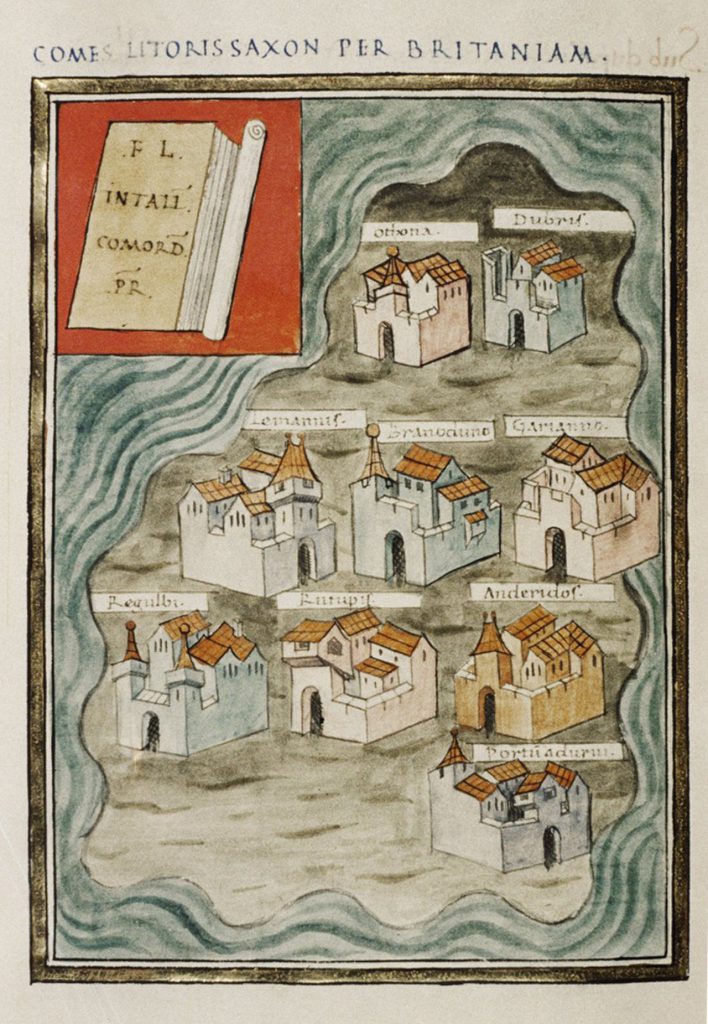 COMES LITORIS SAXON PER BRITANIAM.
.F L.
INTALL
COMORD
PR.
Othona.
Dubris.
Lemannis.
Branoduno
Garianno.
Regulbi.
Rutupis.
Anderidos.
Portū adurni.